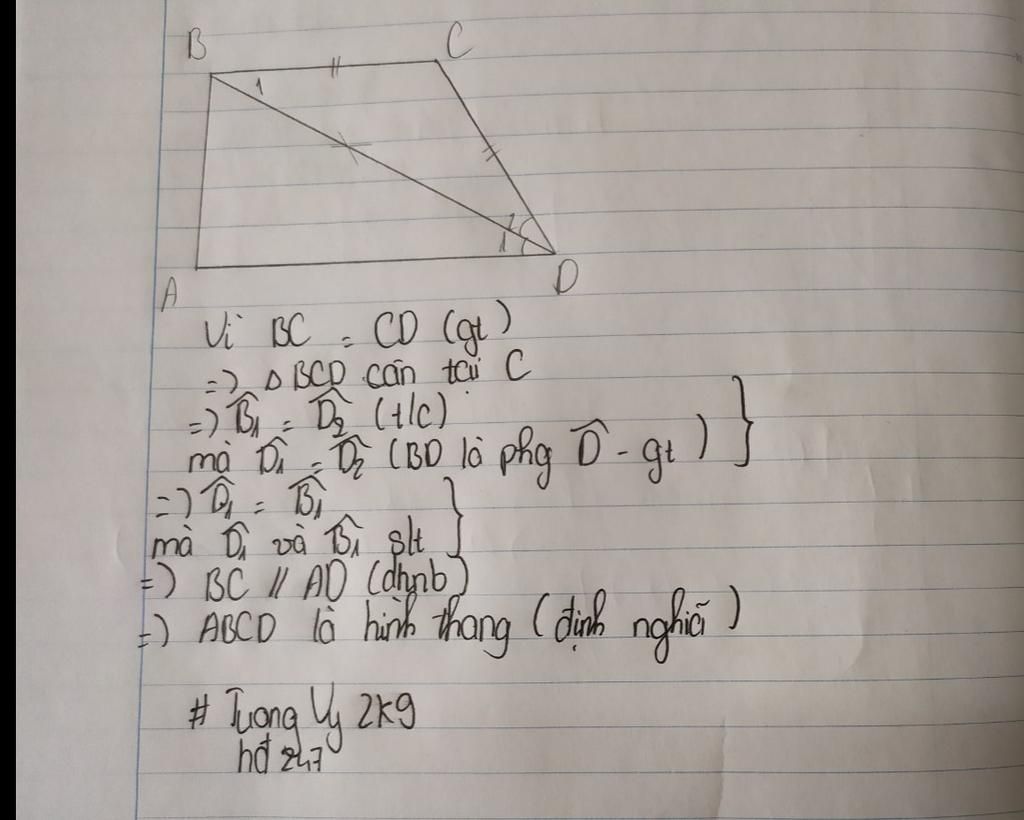 B
C
1
2
1
A
D
Vì BC = CD (gt)
=> Δ BCD cân tại C
=> B̂₁ = D̂₂ (t/c)
mà D̂₁ = D̂₂ (BD là phg D̂ - gt)
=> D̂₁ = B̂₁
mà D̂₁ và B̂₁ slt
=> BC // AD (dhnb)
=> ABCD là hình thang (định nghiã)
# Tuong Vy 2k9
hđ 247